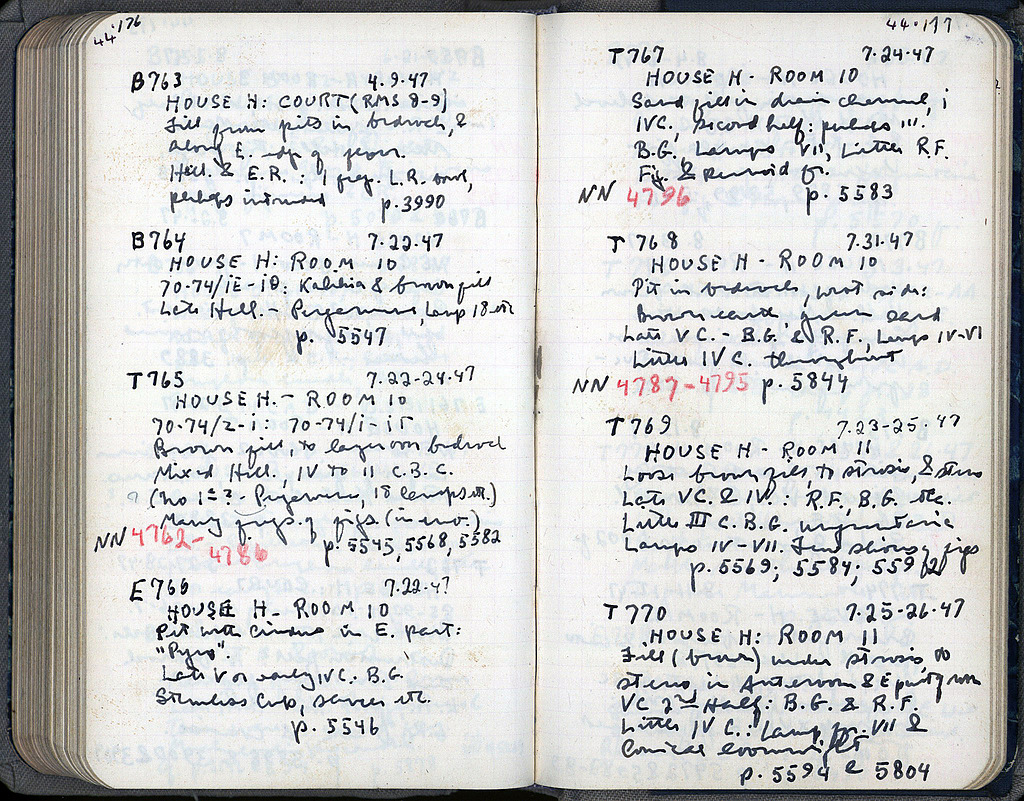 44·176
B763 4.9.47
HOUSE H: COURT (RMS 8-9)
Fill from pits in bedrock, &
along E. edge of room.
Hell. & E.R.: 1 frag. L.R. bowl,
perhaps intruded p. 3990
B764 7.22.47
HOUSE H: ROOM 10
70-74/ΙΕ-ΙΘ: Kalikia & brown fill
Late Hell. - Pergamene, Lamp 18 etc
p. 5547
T765 7.22-24.47
HOUSE H. - ROOM 10
70-74/
Brown fill, to layer over bedrock
Mixed Hell., IV to II C.B.C.
? (No 1st? - Pergamene, 18 lamps etc.)
Many frags. of figs. (in inv.)
NN 4762-
4786 p. 5545, 5568, 5582
E766 7.22.47
HOUSE H - ROOM 10
Pit with cinders in E. part:
"Pyre"
Late V or early IV C. B.G.
Stemless Cup, saucer etc.
p. 5546
44·177
T767 7-24-47
HOUSE H - ROOM 10
Sand fill in drain channel,
IV C., second half:
B.G., Lamps VII, Little R.F.
Fig. & fr.
NN 4796 p. 5583
T768 7.31.47
HOUSE H - ROOM 10
Pit in bedrock, west side:
Brown earth, green sand
Late V C. - B.G. & R.F., Lamps IV-VI
Little IV C. throughout
NN 4787-4795 p. 5844
T769 7.23-25.47
HOUSE H - ROOM 11
Loose brown fill, to strosis, &
Late V C. & IV.: R.F., B.G. etc.
Little III C. B.G.
Lamps IV-VII. figs
p. 5569; 5584; 559
T770 7.25-26.47
HOUSE H: ROOM 11
Fill (brown) under strosis,
in Anteroom & E part of room
V C. 2nd Half: B.G. & R.F.
Little IV C.: Lamp fr. VII &
Conical loomweight
p. 5594 & 5804